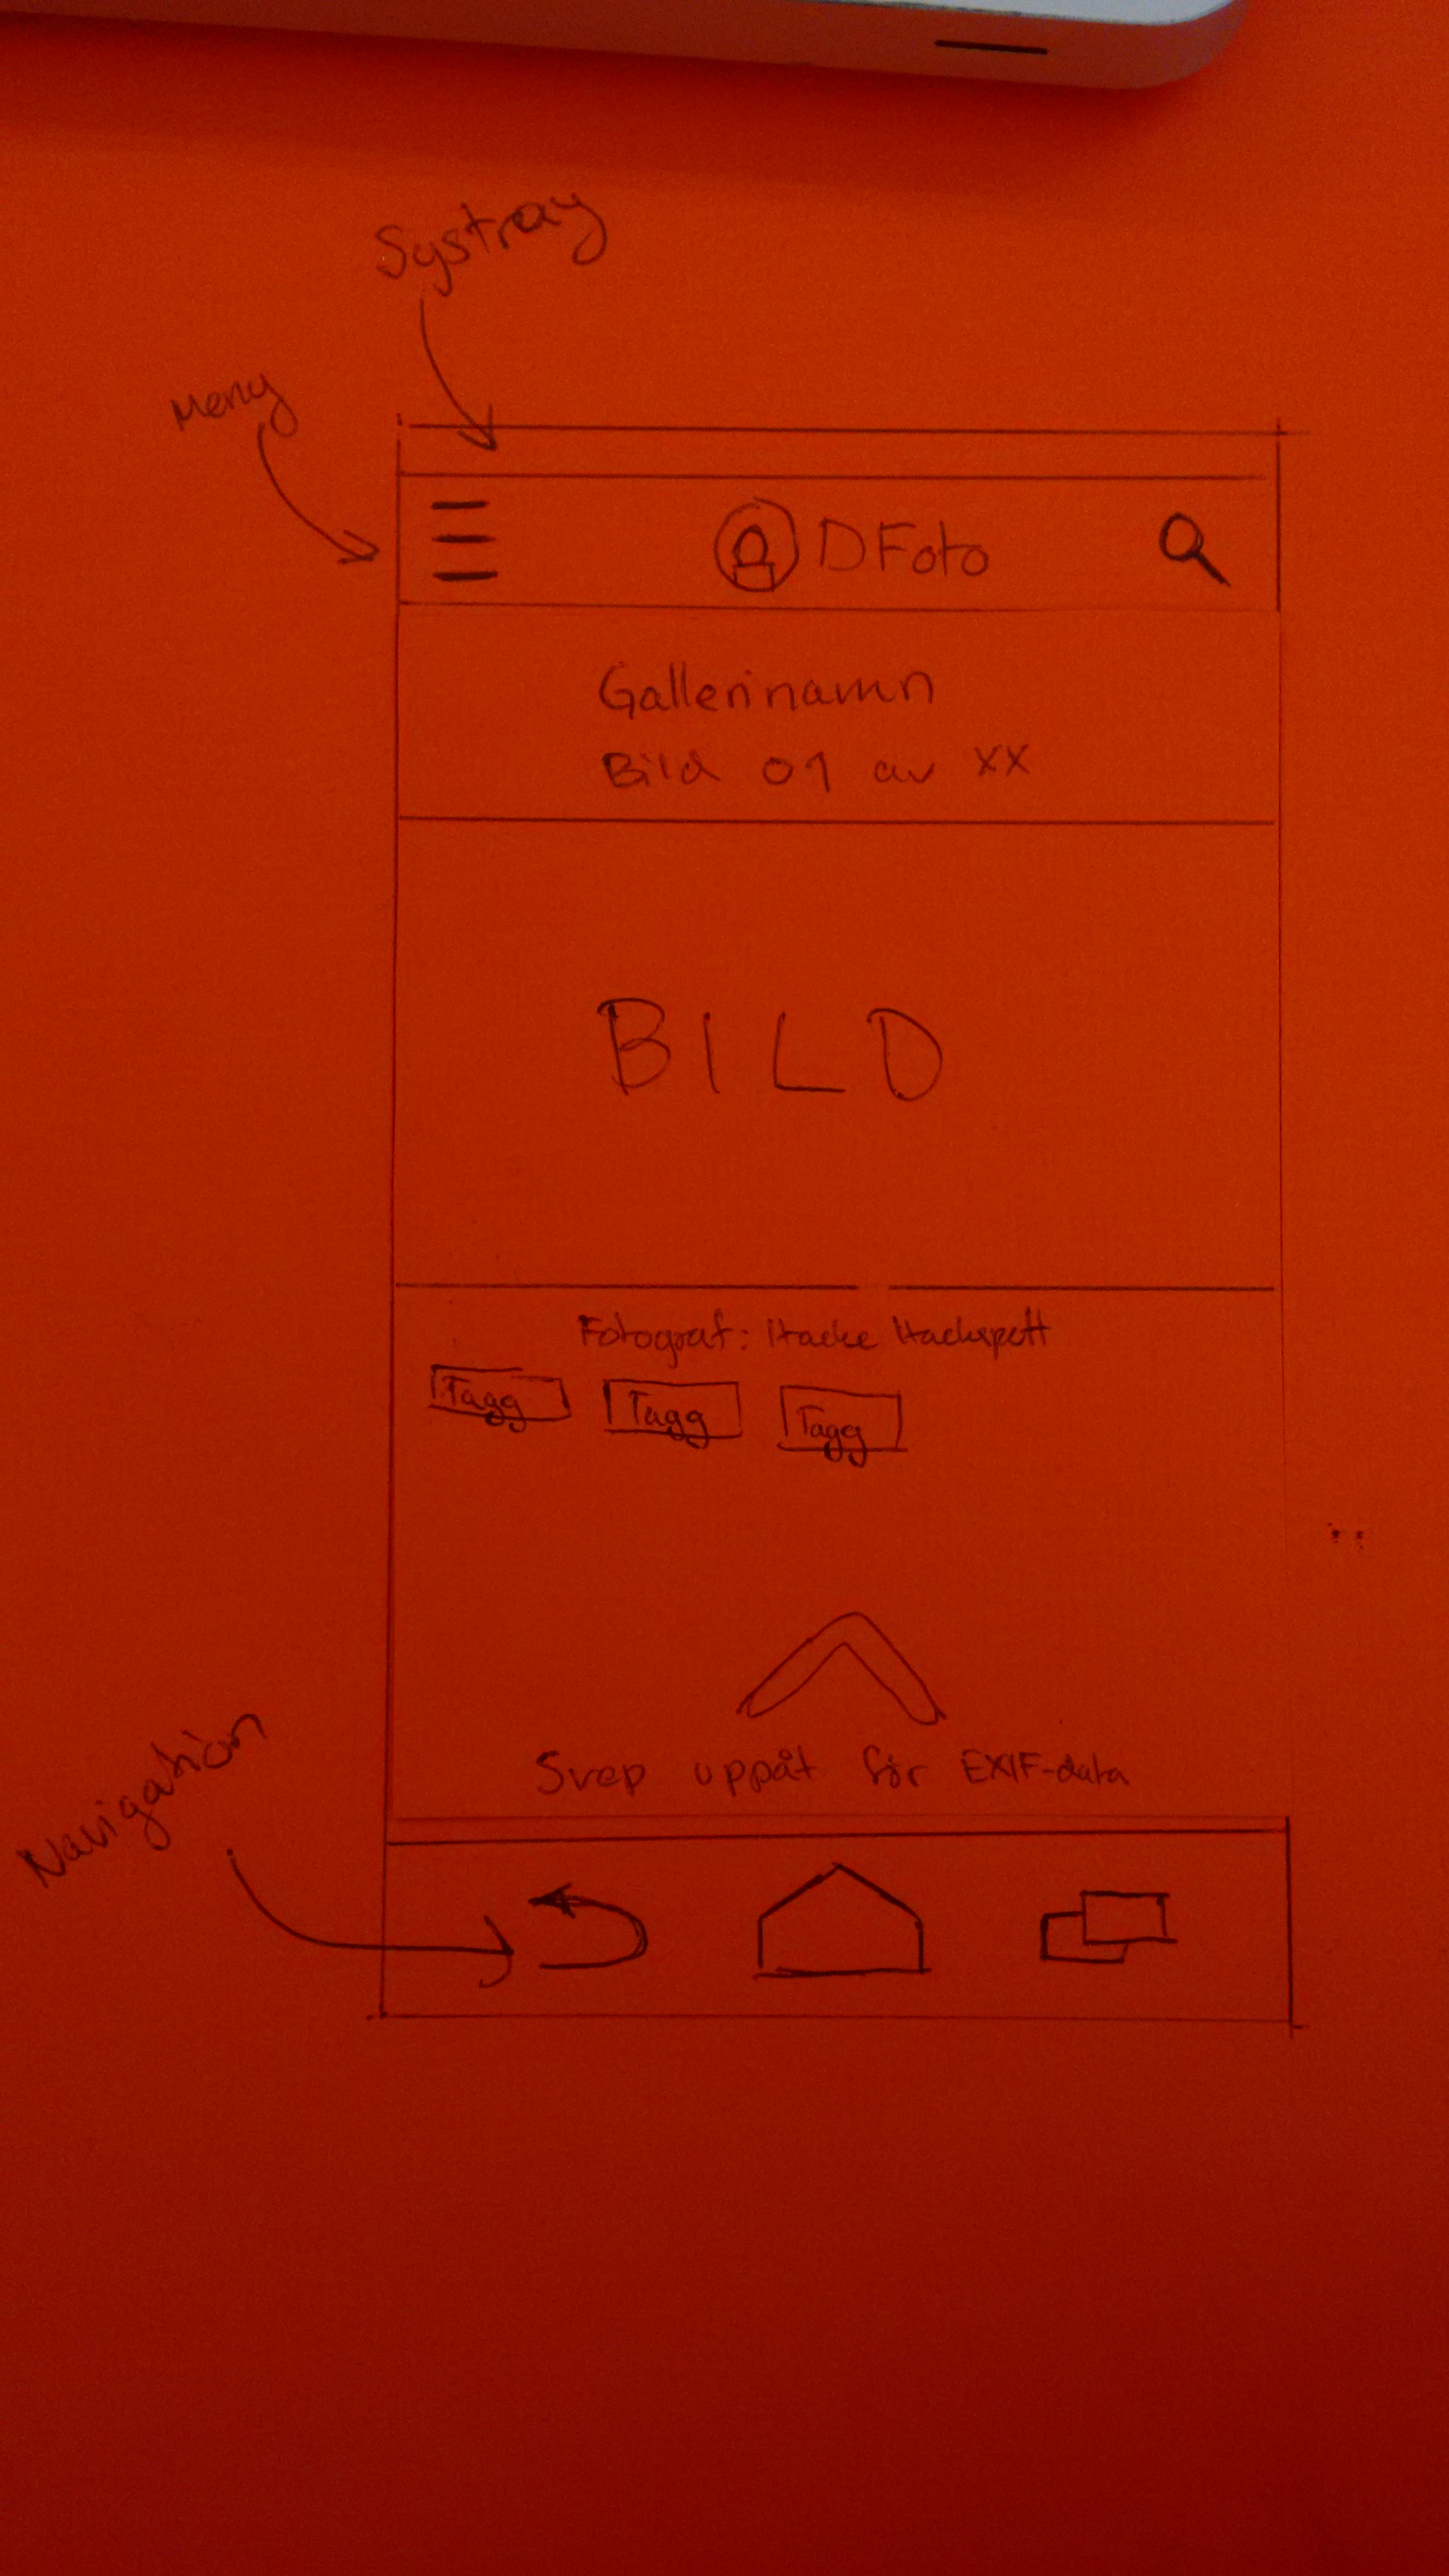 Systray
Meny
DFoto
Gallerinamn
Bild 01 av XX
BILD
Fotograf: Hacke Hackspett
Tagg Tagg Tagg
Svep uppåt för EXIF-data
Navigation